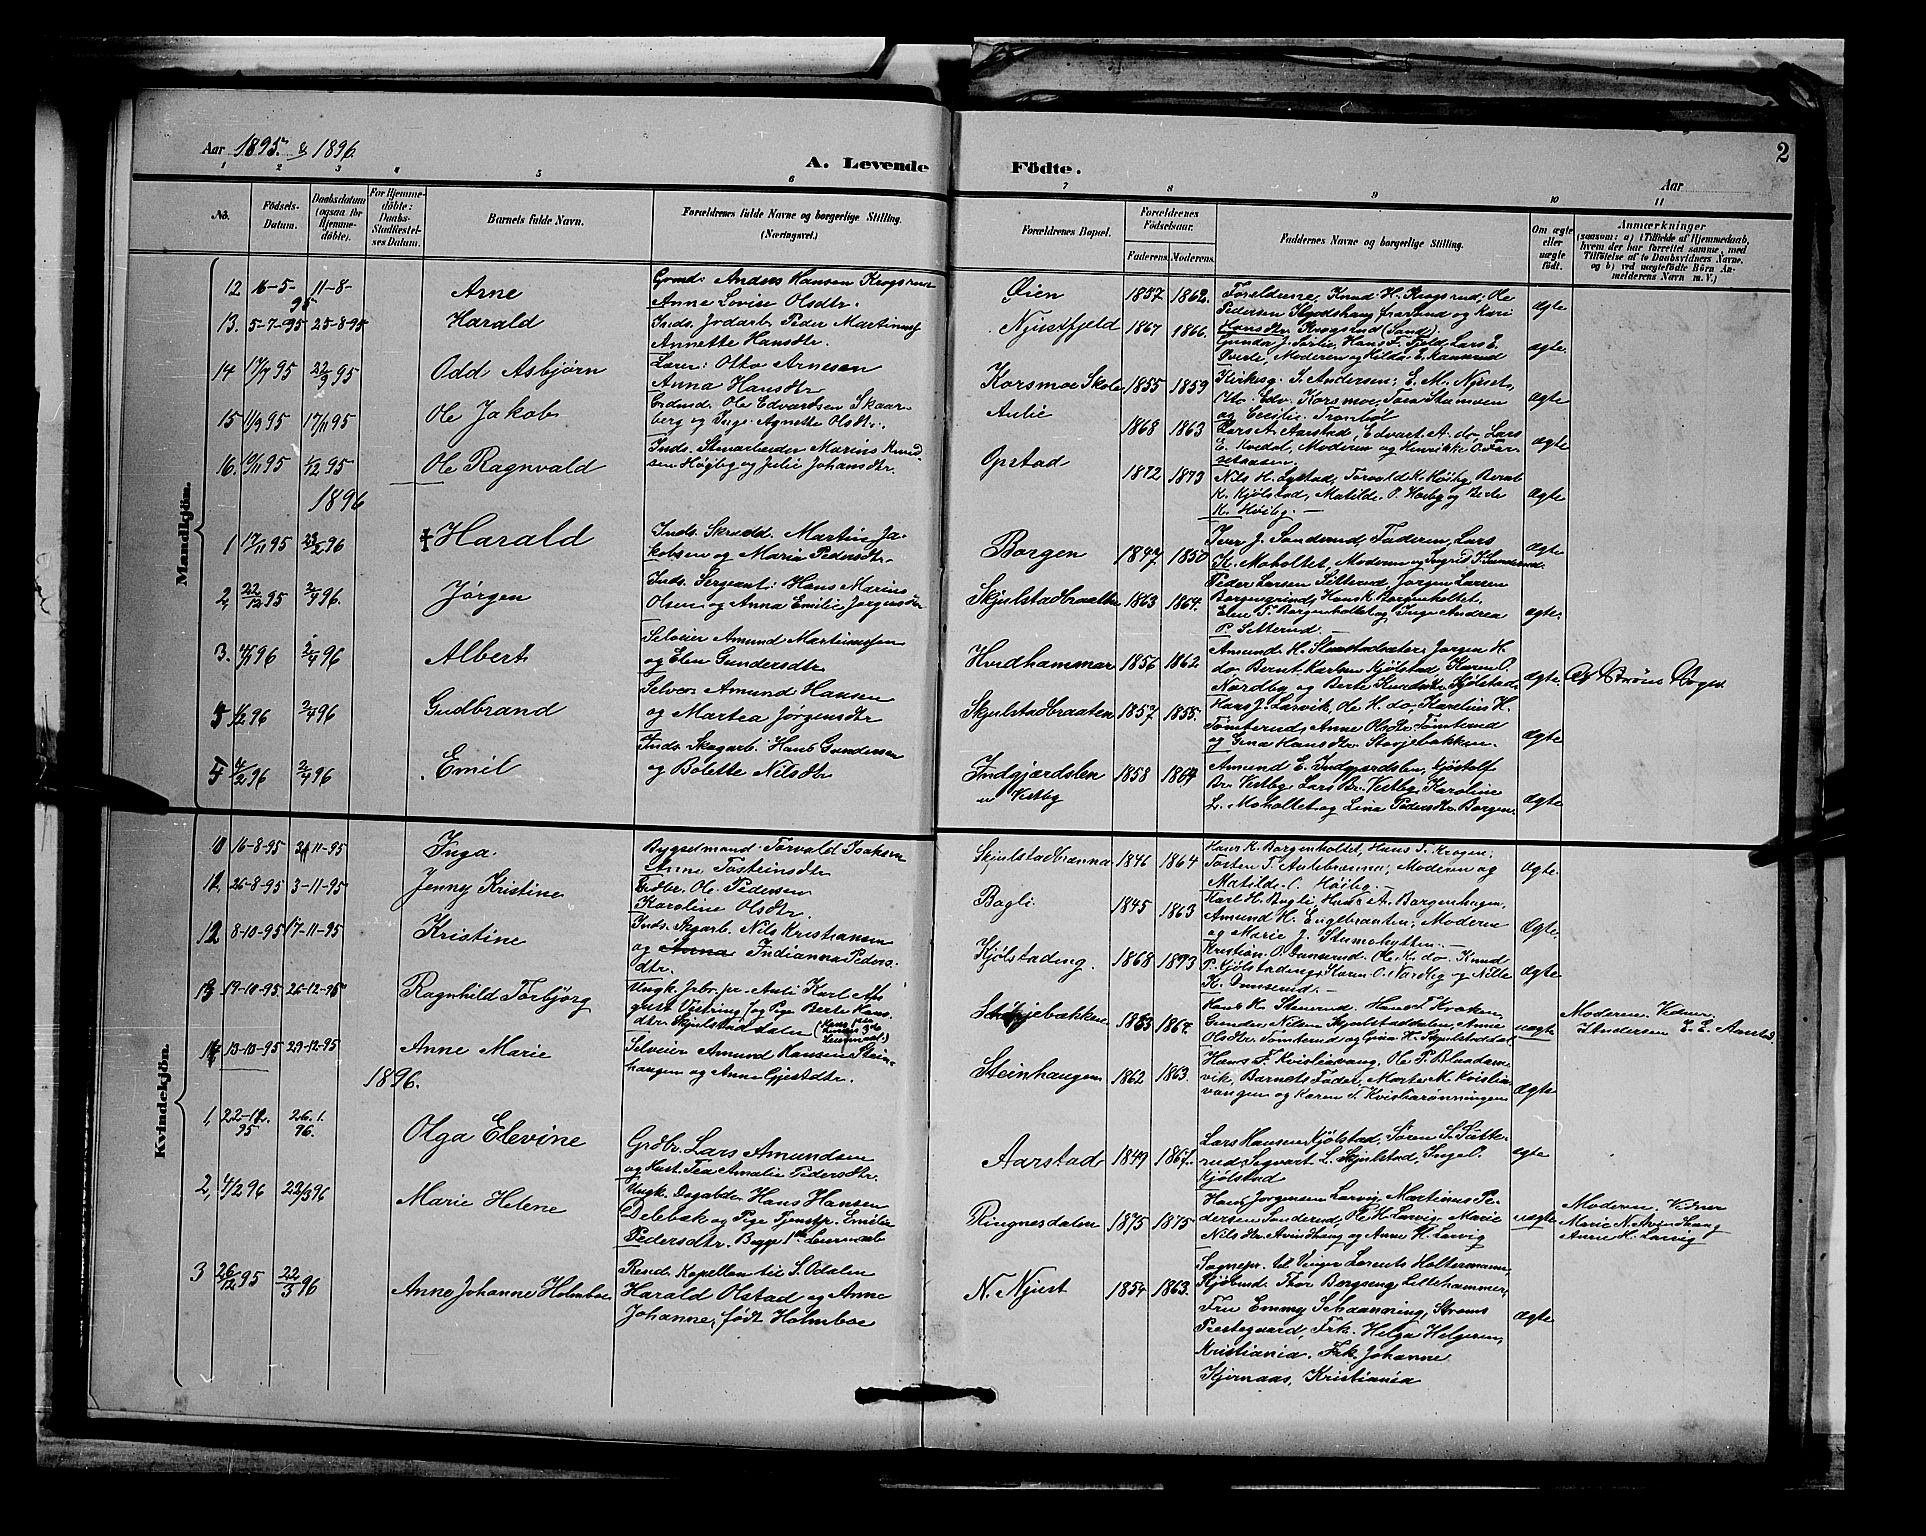 Aar 1895. & 1896.
A. Levende Födte.
Aar
2
1 2 3 4 5 6 7 8 9 10 11
No.
Födsels-Datum.
Daabsdatum (ogsaa for Hjemme-döbte).
For Hjemme-döbte: Daabs-Stadfæstel-ses Datum.
Barnets fulde Navn.
Forældrenes fulde Navne og borgerlige Stilling. (Næringsvei.)
Forældrenes Bopæl.
Forældrenes Födselsaar.
Faderens. Moderens.
Faddernes Navne og borgerlige Stilling.
Om ægte eller uægte födt.
Anmærkninger
(saasom: a) i Tilfælde af Hjemmedaab, hvem der har forrettet samme, med Tilföielse af to Daabsvidners Navne, og b) ved uægtefödte Börn An-melderens Navn m. V.)
Mandkjön.
12 16-5-95 11-8- Arne
Anders Hansen Krogsrud
Anne Lovise Olsdtr.
Øien 1857 1862.
Forældrene, Knud H. Krogsrud, Ole
Pedersen
Hansdtr. Krogstad (Sand).
ægte
13. 5-7-95 25-8-95 Harald
Inds. Jordarb. Peder Martinus
Annette Hansdtr.
Njustfjeld 1867 1866.
Hans F. Fjeld, Lars E.
Moderen og Hilda E.
ægte.
14 17/7 95 22/9 95 Odd Asbjørn
Lærer: Otto Arnesen
Anna Hansdtr
Korsmoe Skole 1855 1859
Kirkesg. S. Andersen, E. M. Njust,
Edv. Korsmoe,
og Cecilie Trombøl
ægte
15 11/9 95 17/11 95 Ole Jakob
Grdmd. Ole Edvartsen Skaar-
berg og Inge Agnette Olsdtr.
Aulie 1868 1863
Lars A. Aarstad, Edvart A. do, Lars
E. Moderen og Henrikke O.
ægte
16. 10/11 95 1/12 95 Ole Ragnvald
Inds. Stenarbeider Marius Knud-
sen Høiby og Julie Johansdtr.
Opstad 1872 1873
Nils H. Torvald K. Høiby, Bernt
K. Kjølstad, Matilde O. Høiby og Berte
K. Høiby.
ægte
1896
1 17/11 95 23/2 96 Harald
Inds. Skrædd. Martin Ja-
kobsen og Maria Pedersdtr.
Borgen 1847 1850
Iver J. Sanderud, Faderen, Lars
K. Moholtet, Moderen og Ingrid J. Sanderud.
ægte
2, 22/12 95 2/4 96. Jørgen
Inds. Sergeant: Hans Marius
Olsen og Anna Emilie Jørgensdtr
Skjulstadbraaten 1863 1864.
Peder Larsen Setterud, Jørgen Larsen
Borgengrind, Hans K. Borgenholtet,
Elen T. Borgenholtet og Inga Andrea
P. Setterud.
ægte.
3. 4/1 96 2/4 96 Albert
Selveier Amund Martinussen
og Elen Gundersdtr
Hudhammer 1856 1862.
Amund H. Jørgen H.
do Bernt Karlsen Kjølstad, Karen O.
Nordby og Berte Knudsdtr. Kjølstad.
ægte.
5 1/2 96 2/4 96 Gudbrand
Selveier Amund Hansen
og Martea Jørgensdtr
Skjulstadbraaten 1857. 1855.
Hans J. Larvik, Ole H. do, Karelius H.
Tømterud, Anne Olsdtr. Tømterud
og Gina Hansdtr. Storjebakken.
ægte
4 4/2 96 2/4 96 Emil
Inds. Skogarb. Hans Gundersen
og Bolette Nilsdtr
Indgjærdslen u/ Vestby 1858 1864
Amund E. Indgjærdslen, Gjøstolf
Br. Vestby Lars Br. Vestby, Karoline
L. Moholtet og Lina Pedersdtr. Borgen.
ægte
Kvindekjön.
10 16-8-95 24 11-95 Inga.
Bygselmand: Torvald Isaksen
Anne Tosteinsdtr
Skjulstadbranna 1841 1864
Hans K. Borgenholtet, Hans T. Krogen,
Tosten T. Aulebranna, Moderen og
Matilde O. Høiby.
ægte.
11. 26-8-95 3-11-95 Jenny Kristine
Grdbr. Ole Pedersen
Karoline Olsdtr.
Bogli 1845 1863
Karl H. Bogli, Hans A. Borgenhagen,
Amund H. Englebraaten, Moderen
og Marie J. Stumohytten.
ægte
12 8-10-95 17-11-95 Kristine
Inds. Skogarb. Nils Kristiansen
og Indianna Peders-
dtr.
Kjølstadeng. 1868 1873
Kristian O. Ole K. do. Knud
P. Kjølstadeng, Karen O. Nordby og Nille
K.
ægte
13 19-10-95 26-12-95 Ragnhild Torbjørg
Ungk. Karl Au-
gust og Pige Berte Hans-
dtr. Skjulstaddalen
1853 1864.
Hans K. Stenerud, Hans T. Kroken,
Gunder Nilsen Skjulstaddalen, Anne
Olsdtr Tømterud og Gina H. Skjulstaddal.
uægte
Moderen. Vidner
14 13-10-95 29-12-95 Anne Marie
Selveier Amund Hansen Stein-
haugen og Anne Gjestdtr.
Steinhaugen 1862 1863.
Hans F. Kvisliavang, Ole P. Bladern-
vik, Barnets Fader, Marte M. Kvislia-
vangen og Karen T. Kvisliarønningen
ægte
1896.
1, 22-12-95 26.1.96. Olga Elevine
Grdbr. Lars Amundsen
og Hust. Tea Amalie Pedersdtr.
Aarstad 1849 1867.
Lars Hansen Kjølstad, Søren S. Sætte-
rud, Segvart L. Skjulstad, Inge O.
Kjølstad
ægte
2, 4/2 96 22/3 96 Marie Helene
Ungk. Dagarb. Hans Hansen
Delebæk og Pige Tjenstp. Emilie
Pedersdtr. Begge 1ste Leiermaal
Ringnesdalen 1875 1875
Hans Jørgensen Larvig, Martinus Pe-
dersen Sanderud, Ole H. Larvig, Marie
Nilsdtr. Avindhaug og Anne H. Larvig
uægte
Moderen. Vidner
Marie N. Avindhaug
Anne H. Larvig
3 26/12 95 22/3 96 Anne Johanne Holmboe
Resid. Kapellan til S. Odalen
Harald Olstad og Anne
Johanne, født Holmboe
N. Njust 1854 1863.
Sognepr. til Vinger Lorents Holtermann,
Kjøbmd. Thor Bergseng Lillehammer,
Fru Emmy Schaanning, Strøms
Prestegaard, Frk. Helga Helgesen,
Kristiania. Frk. Johanne
Kjernaas, Kristiania
ægte